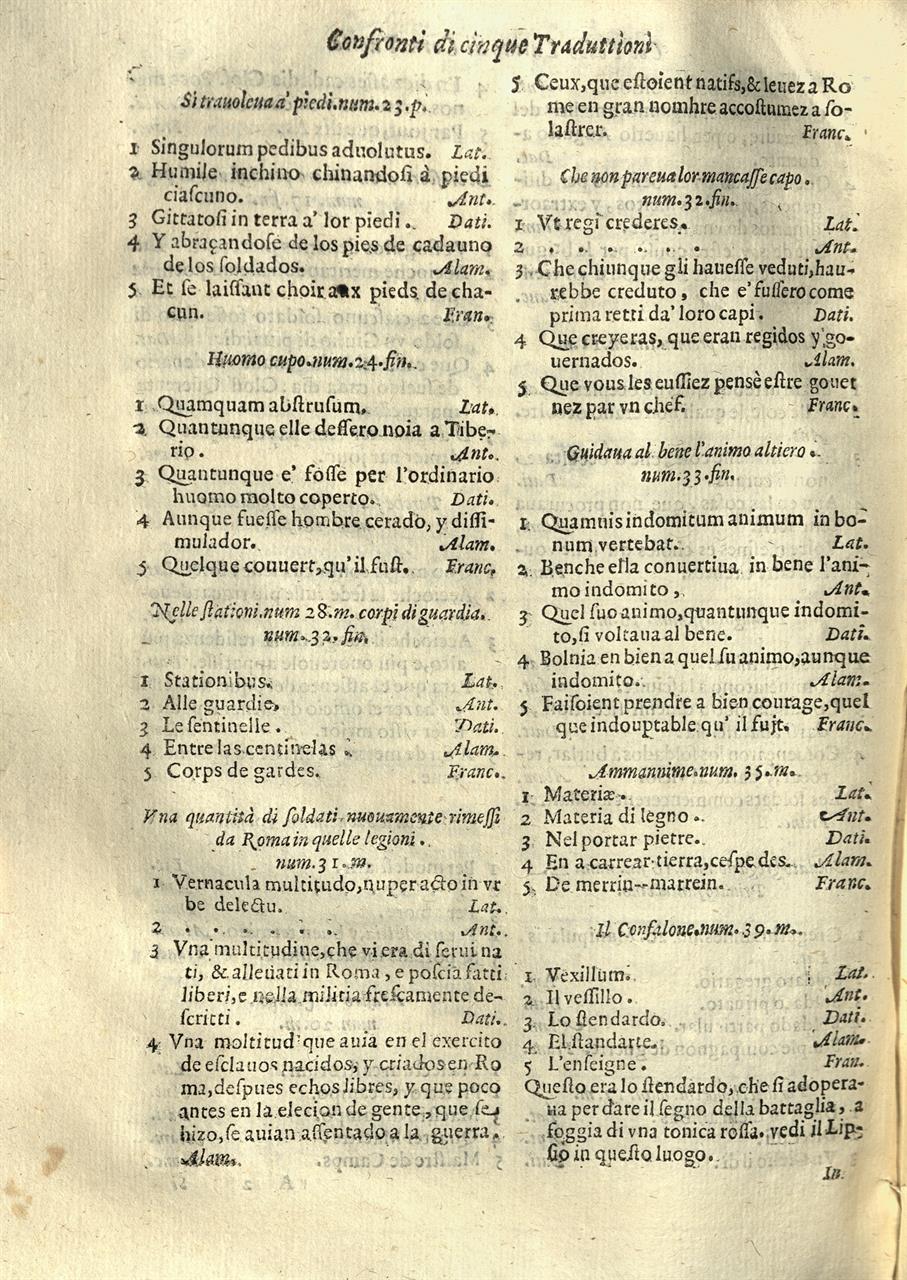 Confronti di cinque Traduttioni
Si trauoleua a' piedi. num. 23. p.
1 Singulorum pedibus aduolutus. Lat.
2 Humile inchino chinandosi à piedi
ciascuno. Ant.
3 Gittatosi in terra a' lor piedi. Dati.
4 Y abraçandose de los pies de cadauno
de los soldados. Alam.
5 Et se laissant choir aux pieds de cha-
cun. Fran.
Huomo cupo. num. 24. fin.
1 Quamquam abstrusum. Lat.
2 Quantunque elle dessero noia a Tibe-
rio. Ant.
3 Quantunque e' fosse per l'ordinario
huomo molto coperto. Dati.
4 Aunque fuesse hombre cerado, y dissi-
mulador. Alam.
5 Quelque couuert, qu'il fust. Franc.
Nelle stationi. num 28. m. corpi di guardia.
num. 32. fin.
1 Stationibus. Lat.
2 Alle guardie. Ant.
3 Le sentinelle. Dati.
4 Entre las centinelas. Alam.
5 Corps de gardes. Franc.
Vna quantità di soldati nuouamente rimessi
da Roma in quelle legioni.
num. 31. m.
1 Vernacula multitudo, nuper acto in vr
be delectu. Lat.
2 . . . . . . Ant.
3 Vna multitudine, che vi era di serui na
ti, & alleuati in Roma, e poscia fatti
liberi, e nella militia frescamente de-
scritti. Dati.
4 Vna moltitud que auia en el exercito
de esclauos nacidos, y criados en Ro
ma, despues echos libres, y que poco
antes en la elecion de gente, que se
hizo, se auian assentado a la guerra.
Alam.
5 Ceux, que estoient natifs, & leuez a Ro
me en gran nomhre accostumez a so-
lastrer. Franc.
Che non pareua lor mancasse capo.
num. 32. fin.
1 Vt regi crederes. Lat.
2 . . . . . . . Ant.
3 Che chiunque gli hauesse veduti, hau-
rebbe creduto, che e' fussero come
prima retti da' loro capi. Dati.
4 Que creyeras, que eran regidos y go-
uernados. Alam.
5 Que vous les eussiez pensè estre gouer
nez par vn chef. Franc.
Guidaua al bene l'animo altiero.
num. 33. fin.
1 Quamuis indomitum animum in bo-
num vertebat. Lat.
2 Benche essa conuertiua in bene l'ani-
mo indomito, Ant.
3 Quel suo animo, quantunque indomi-
to, si voltaua al bene. Dati.
4 Bolnia en bien a quel su animo, aunque
indomito. Alam.
5 Faisoient prendre a bien courage, quel
que indouptable qu' il fujt. Franc.
Ammannime. num. 35. m.
1 Materiæ. Lat.
2 Materia di legno. Ant.
3 Nel portar pietre. Dati.
4 En a carrear tierra, cespedes. Alam.
5 De merrin--marrein. Franc.
Il Confalone. num. 39. m.
1 Vexillum. Lat.
2 Il vessillo. Ant.
3 Lo stendardo. Dati.
4 El standarte. Alam.
5 L'enseigne. Fran.
Questo era lo stendardo, che si adopera-
ua per dare il segno della battaglia, a
foggia di vna tonica rossa. vedi il Lip-
sio in questo luogo.
In